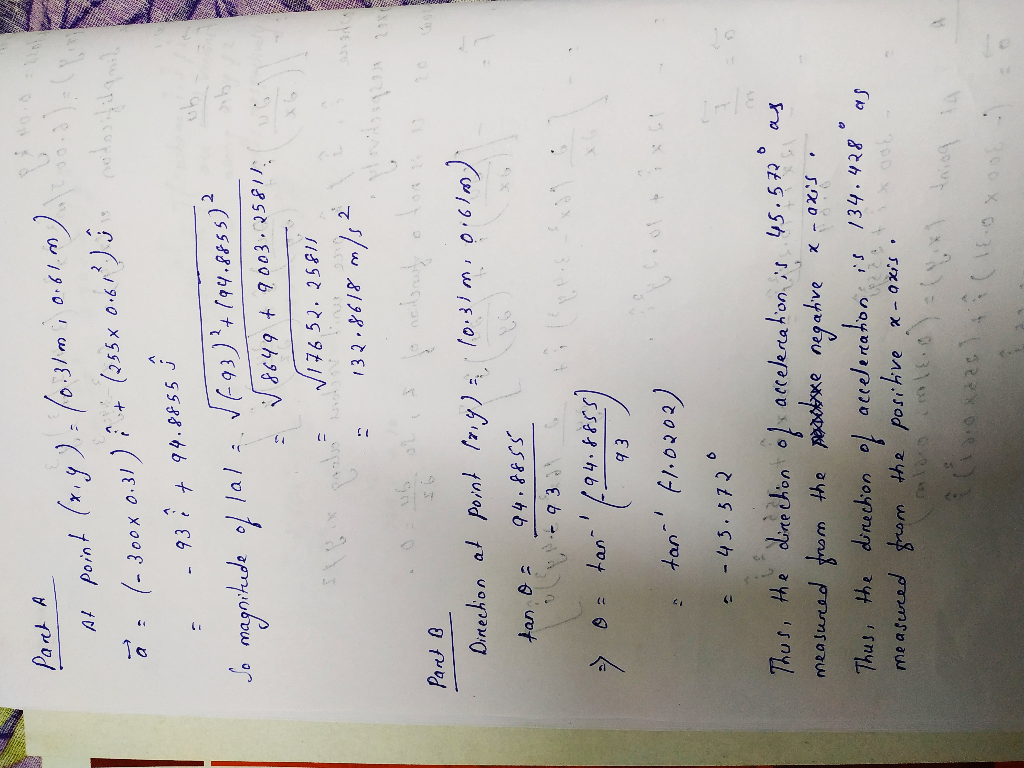 Part A
At point (x,y) = (0.31m, 0.61m)
a⃗ = (-300x 0.31) î + (255x 0.61²) ĵ
= - 93 î + 94.8855 ĵ
So magnitude of |a| = √(-93)² + (94.8855)²
= √8649 + 9003.25811
= √17652.25811
= 132.8618 m/s²
Part B
Direction at point (x,y) = (0.31m, 0.61m)
tan θ = 94.8855 / -93
⇒ θ = tan⁻¹ (-94.8855 / 93)
= tan⁻¹ (-1.0202)
= -45.572°
Thus, the direction of acceleration is 45.572° as
measured from the negative x-axis.
Thus, the direction of acceleration is 134.428° as
measured from the positive x-axis.